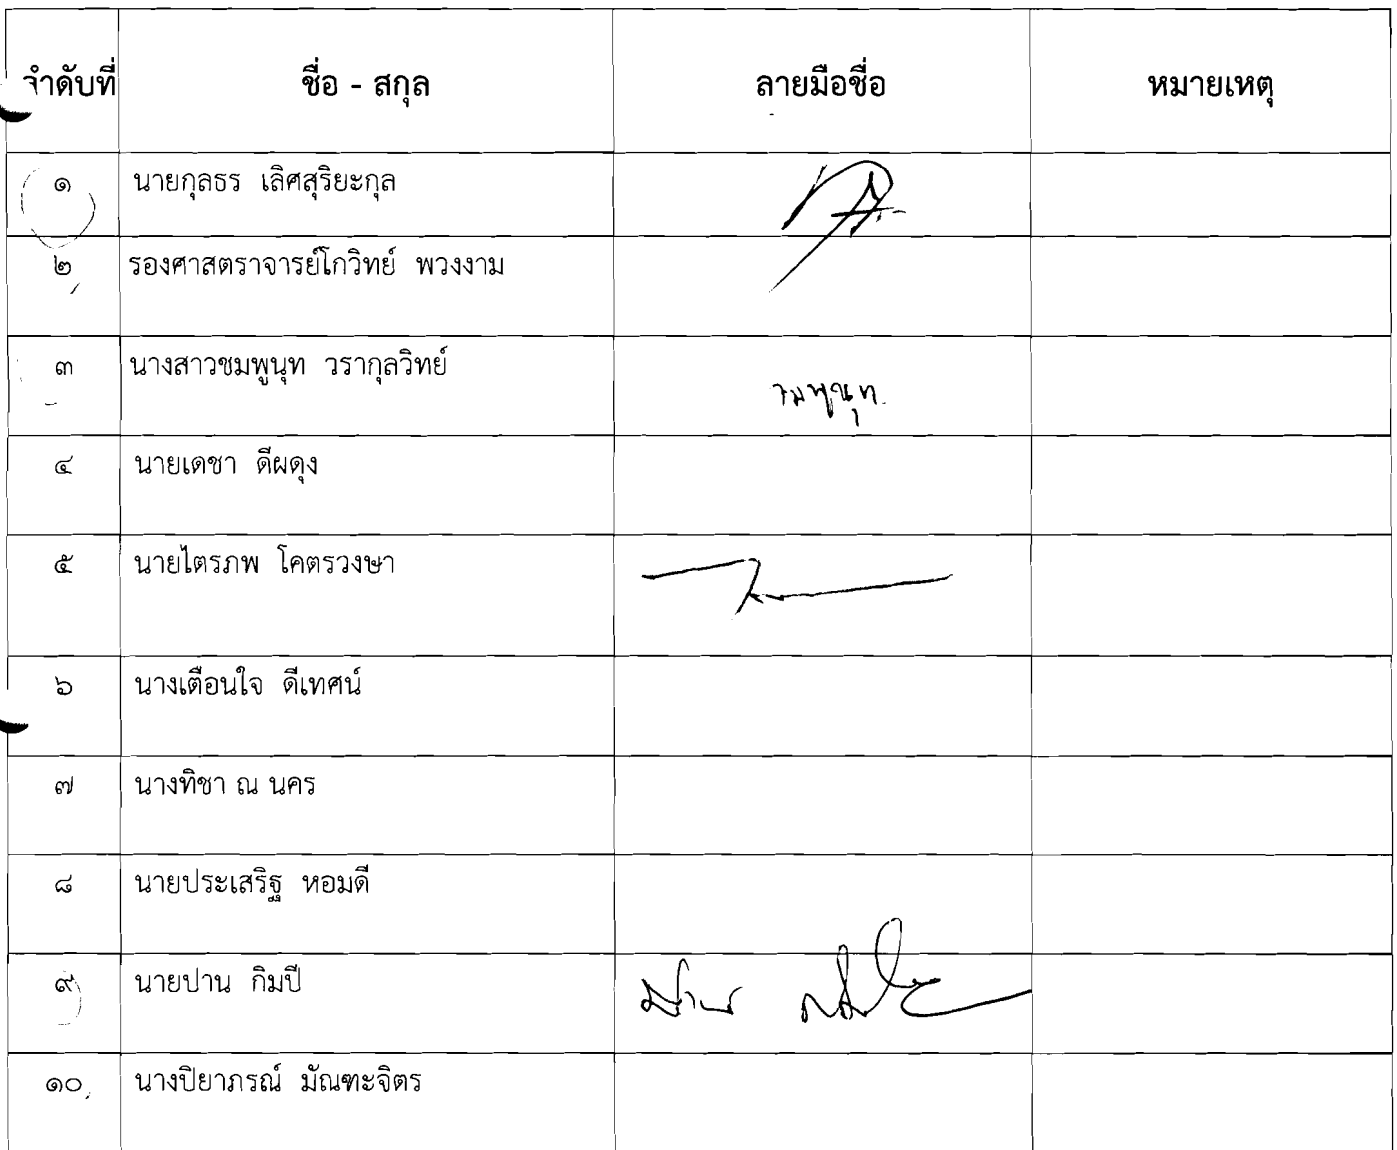 ลำดับที่ ชื่อ - สกุล ลายมือชื่อ หมายเหตุ
๑ นายกุลธร เลิศสุริยะกุล
๒ รองศาสตราจารย์โกวิทย์ พวงงาม
๓ นางสาวชมพูนุท วรากุลวิทย์ ชมพูนุท
๔ นายเดชา ดีผดุง
๕ นายไตรภพ โคตรวงษา
๖ นางเตือนใจ ดีเทศน์
๗ นางทิชา ณ นคร
๘ นายประเสริฐ หอมดี
๙ นายปาน กิมปี
๑๐ นางปิยาภรณ์ มัณฑะจิตร